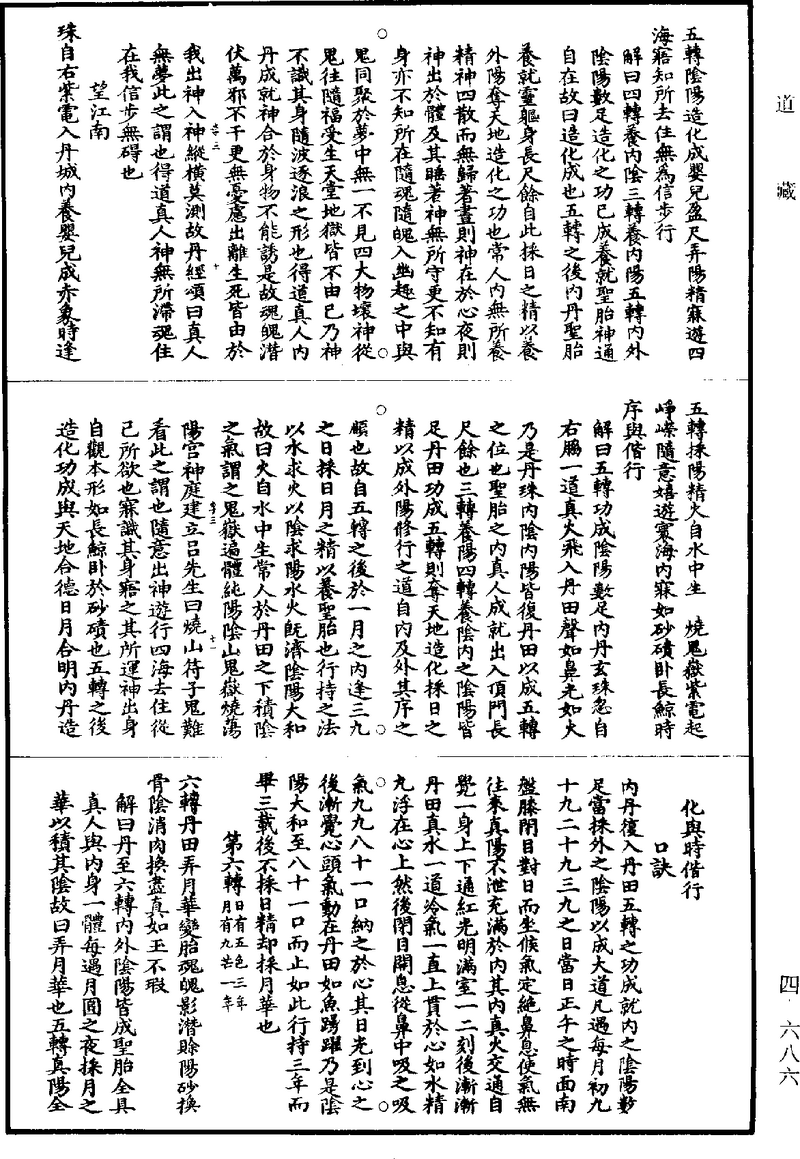 道藏
五轉陰陽造化成嬰兒盈尺弄陽精寐遊四
海寤知所去住無為信步行
解曰四轉養內陰三轉養內陽五轉內外
陰陽數足造化之功已成養就聖胎神通
自在故曰造化成也五轉之後內丹聖胎
養就靈軀身長尺餘自此採日之精以養
外陽奪天地造化之功也常人內無所養
精神四散而無歸著晝則神在於心夜則
神出於體及其睡著神無所守更不知有
身亦不知所在隨魂隨魄入幽趣之中與
鬼同聚於夢中無一不見四大物壞神從
鬼往隨福受生天堂地獄皆不由已乃神
不識其身隨波逐浪之形也得道真人內
丹成就神合於身物不能誘是故魂魄潛
伏萬邪不干更無憂慮出離生死皆由於
我出神入神縱橫莫測故丹經頌曰真人
無夢此之謂也得道真人神無所滯魂住
在我信步無碍也
望江南
珠自右紫電入丹城內養嬰兒成赤象時逢
五轉採陽精火自水中生 燒鬼嶽紫電起
崢嶸隨意嬉遊寰海內寐如砂磧卧長鯨時
序與偕行
解曰五轉功成陰陽數足內丹玄珠忽自
右脇一道真火飛入丹田聲如鼻光如火
乃是丹珠內陰內陽皆復丹田以成五轉
之位也聖胎之內真人成就出入頂門長
尺餘也三轉養陽四轉養陰內之陰陽皆
足丹田功成五轉則奪天地造化採日之
精以成外陽修行之道自內及外其序之
順也故自五轉之後於一月之內逢三九
之日採日月之精以養聖胎也行持之法
以水求火以陰求陽水火既濟陰陽大和
故曰火自水中生常人於丹田之下積陰
之氣謂之鬼嶽遍體純陽陰山鬼嶽燒蕩
陽宮神庭建立呂先生曰燒山符子鬼難
看此之謂也隨意出神遊行四海去住從
己所欲也寐識其身寤之其所運神出身
自觀本形如長鯨卧於砂磧也五轉之後
造化功成與天地合德日月合明內丹造
化與時偕行
口訣
內丹復入丹田五轉之功成就內之陰陽數
足當採外之陰陽以成大道凡遇每月初九
十九二十九三九之日當日正午之時面南
盤膝閉目對日而坐候氣定絕鼻息使氣無
往來真陽不泄充滿於內其內真火交通自
覺一身上下通紅光明滿室一二刻後漸漸
丹田真水一道冷氣一直上貫於心如水精
丸浮在心上然後閉目開息從鼻中吸之吸
氣九九八十一口納之於心其日光到心之
後漸覺心頭氣動在丹田如魚踴躍乃是陰
陽大和至八十一口而止如此行持三年而
畢三載後不採日精却採月華也
第六轉日有五色三年月有九芒一年
六轉丹田弄月華變胎魂魄影潛賒陽砂換
骨陰消肉換盡真如玉不瑕
解曰丹至六轉內外陰陽皆成聖胎全具
真人與內身一體每遇月圓之夜採月之
華以積其陰故曰弄月華也五轉真陽全
四·六八六